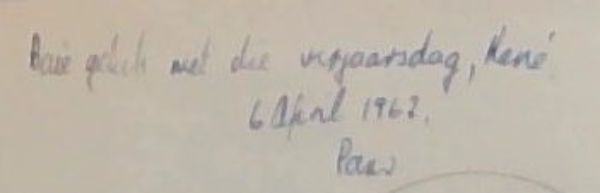 Baie geluk met die verjaarsdag, René
6 April 1962.